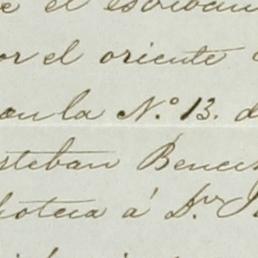 e el escriban
or el oriente
con la N.º 13. d
steban Bene
ioteca á D.n J